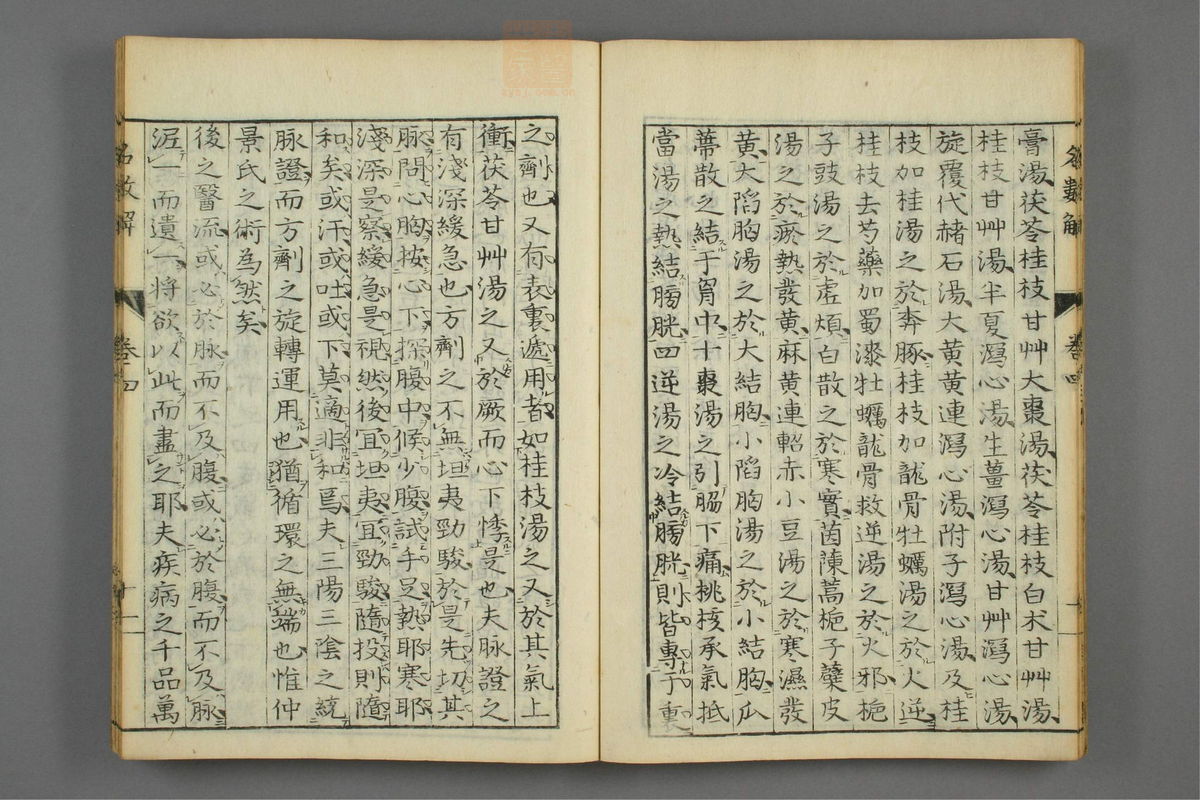 膏湯茯苓桂枝甘艸大棗湯茯苓桂枝白朮甘艸湯
桂枝甘艸湯半夏瀉心湯生薑瀉心湯甘艸瀉心湯
旋覆代赭石湯大黄黄連瀉心湯附子瀉心湯及桂
枝加桂湯之於奔豚桂枝加龍骨牡蠣湯之於火逆
桂枝去芍藥加蜀漆牡蠣龍骨救逆湯之於火邪梔
子豉湯之於虛煩白散之於寒實茵蔯蒿梔子蘗皮
湯之於瘀熱發黄麻黄連軺赤小豆湯之於寒濕發
黄大陷胸湯之於大結胸小陷胸湯之於小結胸瓜
蔕散之結于胷中十棗湯之引脇下痛桃核承氣抵
當湯之熱結膀胱四逆湯之冷結膀胱則皆專于裏
之劑也又有表裏遞用者如桂枝湯之又於其氣上
衝茯苓甘艸湯之又於厥而心下悸是也夫脉證之
有淺深緩急也方劑之不無坦夷勁駿於是先切其
脉問心胸按心下探腹中候少腹試手足熱耶寒耶
淺深是察緩急是視然後宜坦夷宜勁駿隨投則隨
和矣或汗或吐或下莫適非和焉夫三陽三陰之統
脉證而方劑之旋轉運用也猶循環之無端也惟仲
景氏之術為然矣
後之醫流或必於脉而不及腹或必於腹而不及脉
泥一而遺一將欲以此而盡之耶夫疾病之千品萬
名數解
卷四
十二